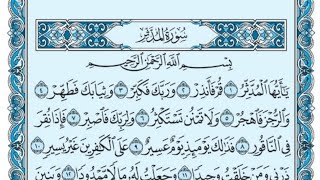 سُورَةُ المُدَّثِّرِ
بِسْمِ اللَّهِ الرَّحْمَٰنِ الرَّحِيمِ
يَا أَيُّهَا الْمُدَّثِّرُ ١ قُمْ فَأَنذِرْ ٢ وَرَبَّكَ فَكَبِّرْ ٣ وَثِيَابَكَ فَطَهِّرْ ٤
وَالرُّجْزَ فَاهْجُرْ ٥ وَلَا تَمْنُن تَسْتَكْثِرُ ٦ وَلِرَبِّكَ فَاصْبِرْ ٧ فَإِذَا نُقِرَ
فِي النَّاقُورِ ٨ فَذَٰلِكَ يَوْمَئِذٍ يَوْمٌ عَسِيرٌ ٩ عَلَى الْكَافِرِينَ غَيْرُ يَسِيرٍ ١٠
ذَرْنِي وَمَنْ خَلَقْتُ وَحِيدًا ١١ وَجَعَلْتُ لَهُ مَالًا مَّمْدُودًا ١٢ وَبَنِينَ